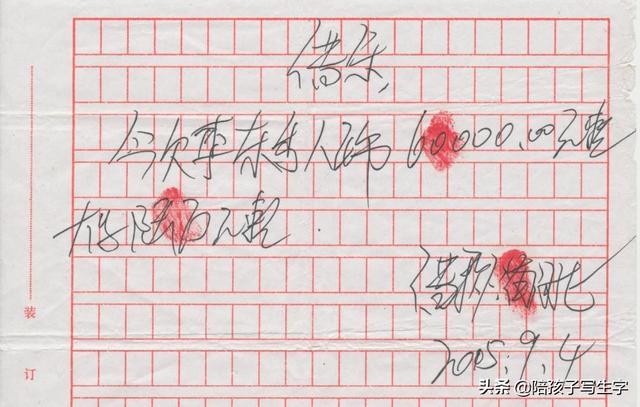 借条
今欠 人民币 60000.00元整
大写陆万元整.
借款人:
2005.9.4
装
订
头条 @陪孩子写生字